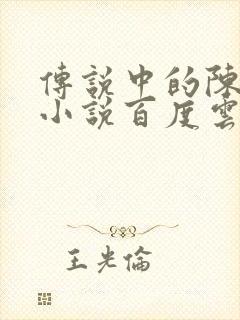 傳說中的陳
小說百度雲
王光倫